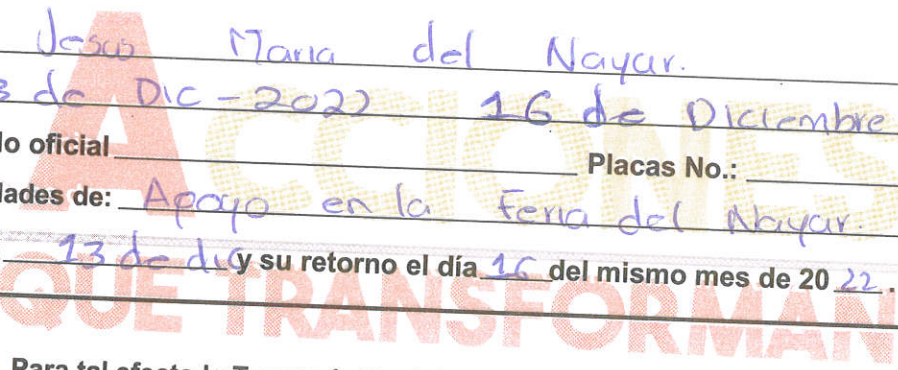 Jesus Maria del Nayar.
3 de Dic - 2022 16 de Diciembre
lo oficial Placas No.:
dades de: Apoyo en la Feria del Nayar.
13 de dic y su retorno el día 16 del mismo mes de 20 22.
ACCIONES
QUE TRANSFORMAN